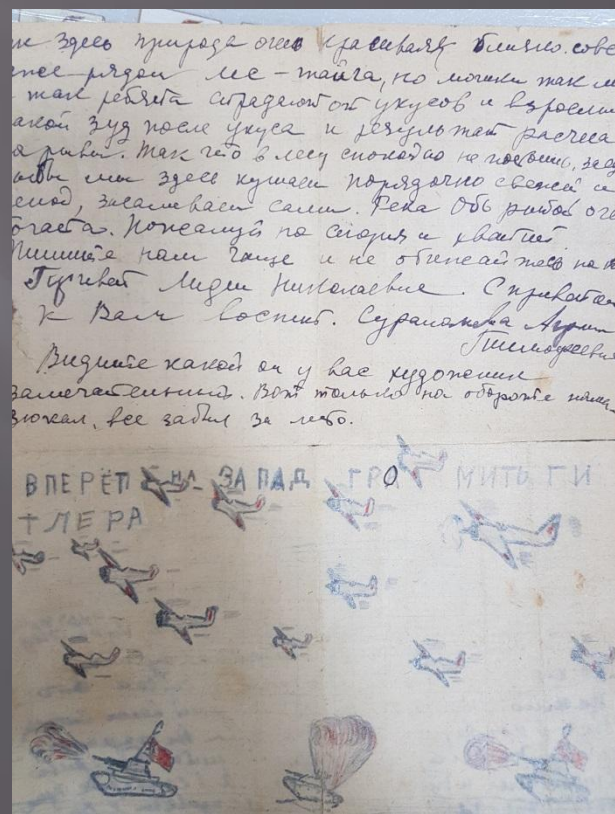 здесь природа очень красивая близко сов
рядом лес - тайга, но мошки так м
так ребята страдают от укусов и взрослы
акой зуд после укуса и результат расчеса
рывы. Так что в лесу спокойно не
мы здесь кушаем порядочно свежей и
, засаливаем сами. Река Обь рыбой оч
огата. Пожалуй на сегодня и хватит.
Пишите нам чаще и не обижайтесь на н
Привет Лидии Николаевне. С приветом
к Вам воспит.
Тимофеевна
Видите какой он у вас художник
замечательный. Вот только на обороте нама
зюкал, все забыл за лето.
ВПЕРЁТ НА ЗАПАД ГРОМИТЬ ГИ
ТЛЕРА